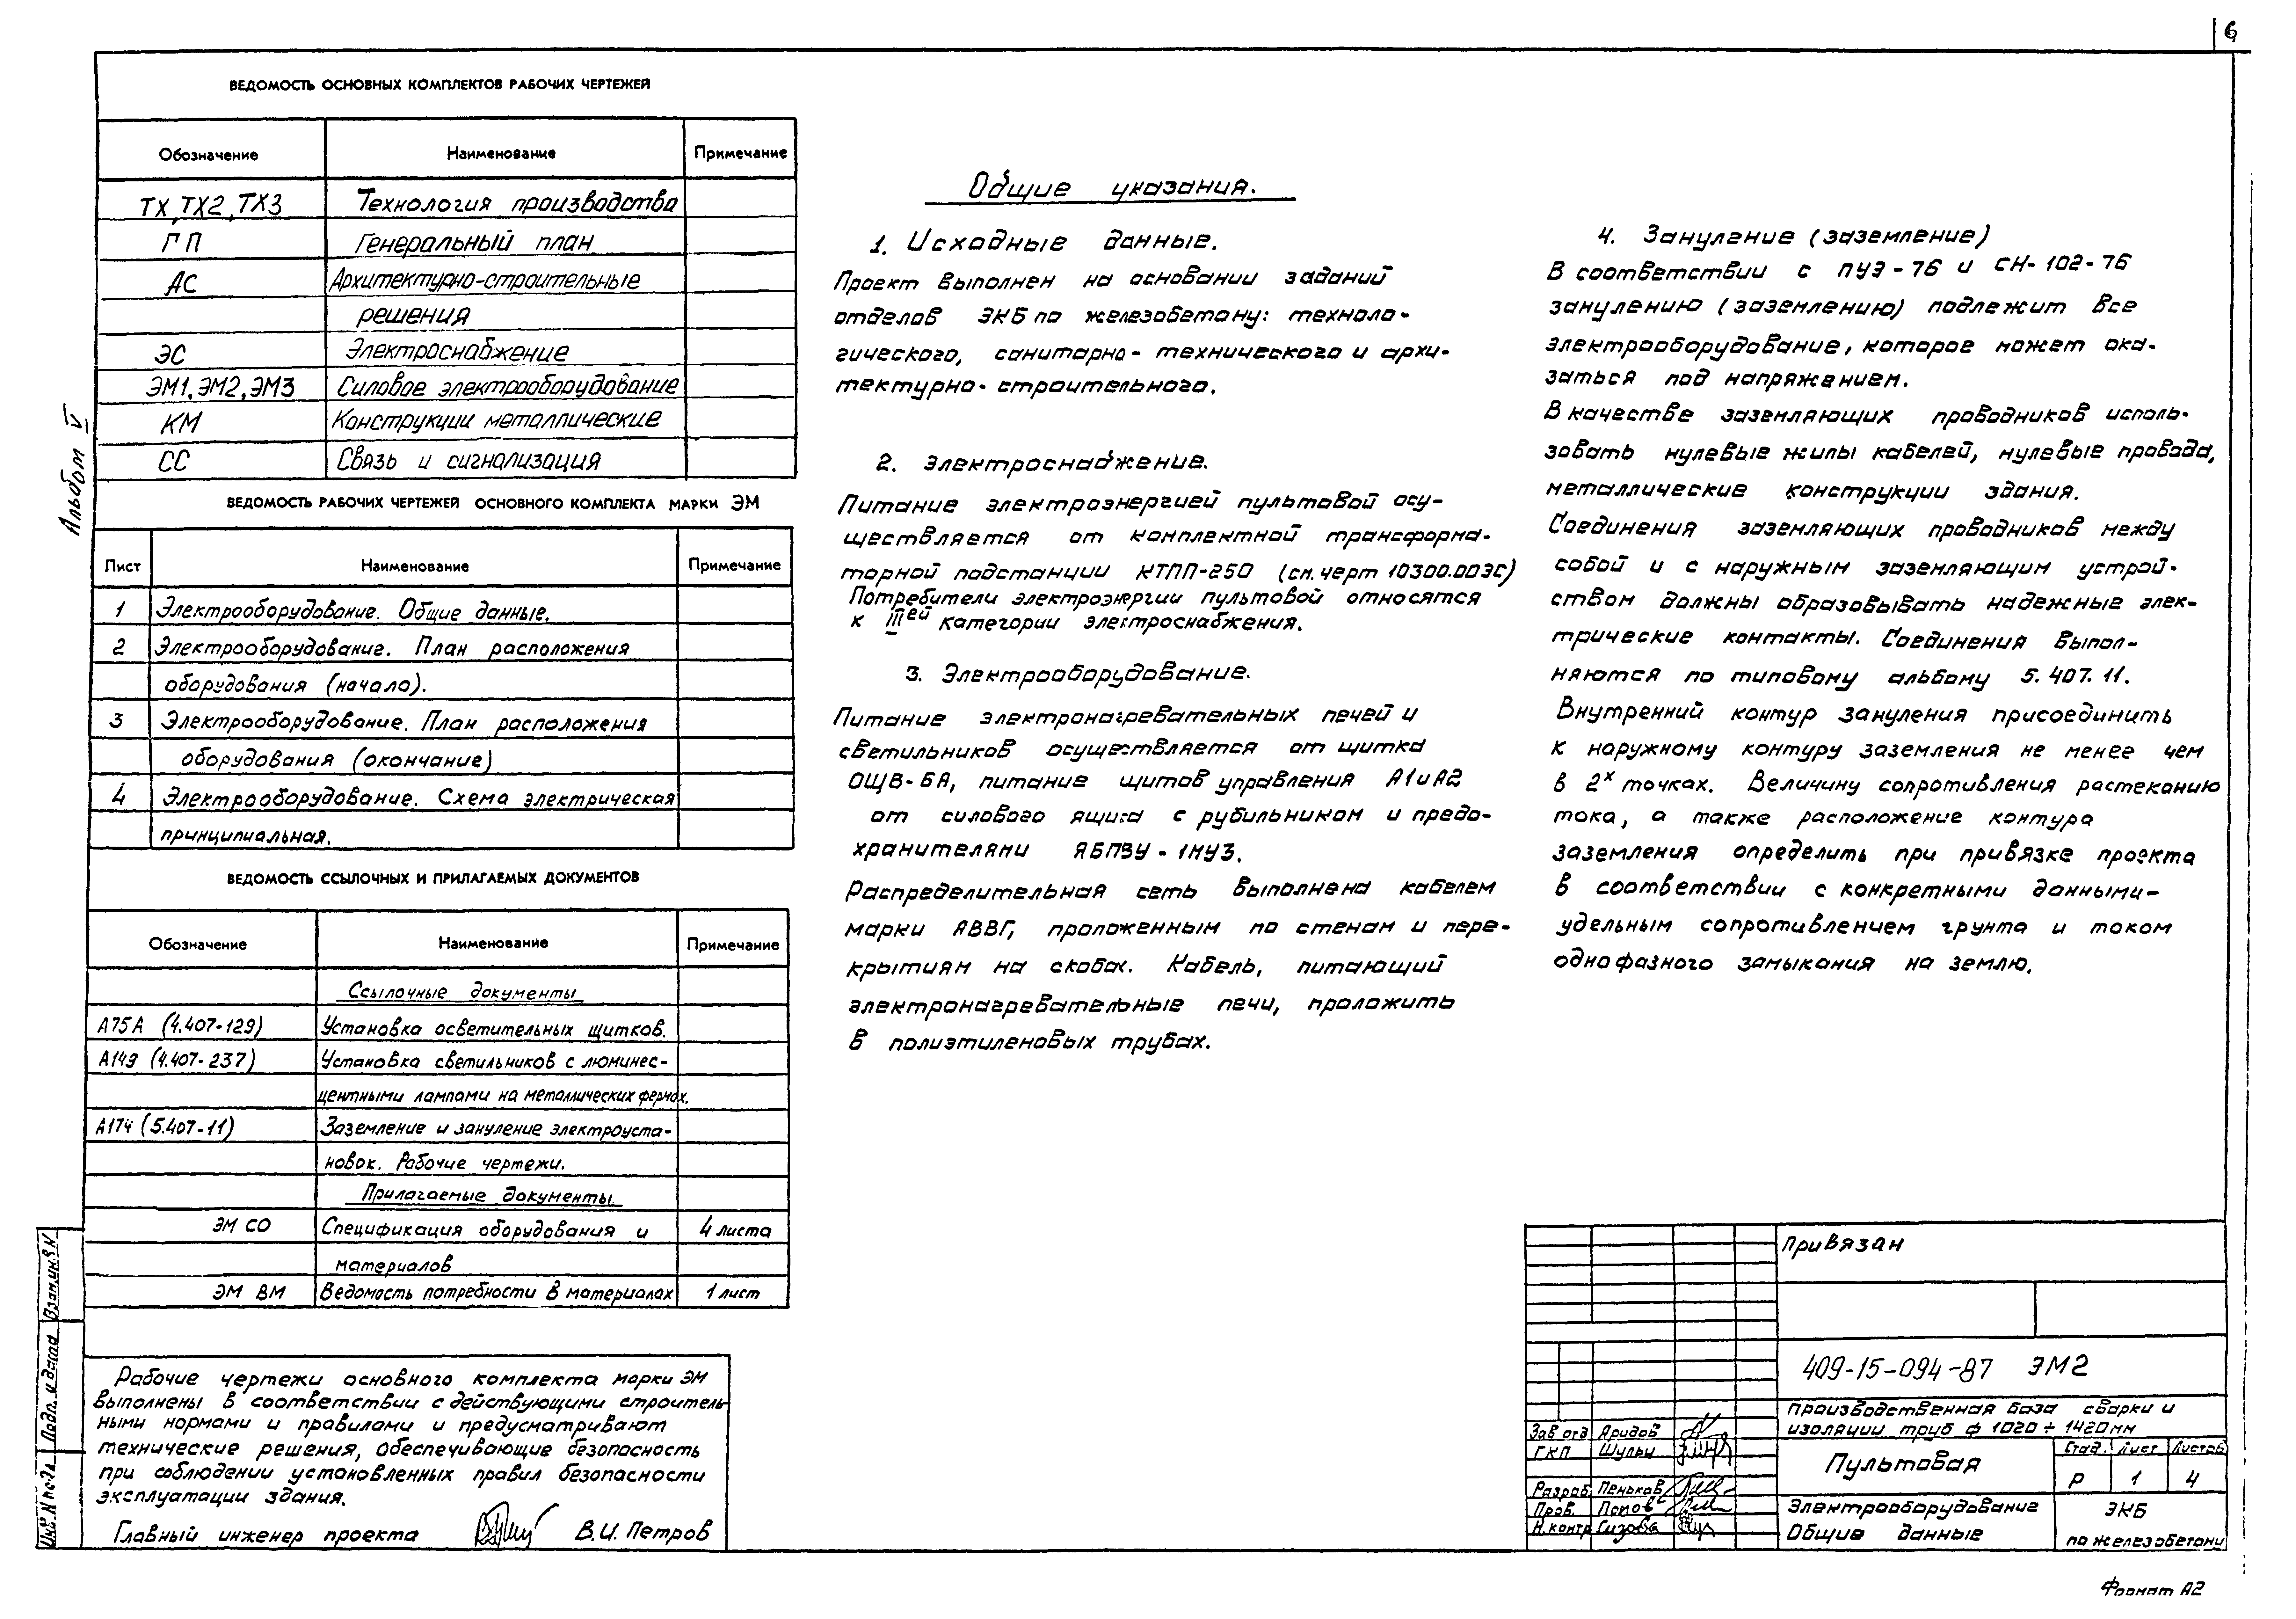 6
ВЕДОМОСТЬ ОСНОВНЫХ КОМПЛЕКТОВ РАБОЧИХ ЧЕРТЕЖЕЙ
Обозначение Наименование Примечание
ТХ, ТХ2, ТХ3 Технология производства
ГП Генеральный план
АС Архитектурно-строительные
решения
ЭС Электроснабжение
ЭМ1, ЭМ2, ЭМ3 Силовое электрооборудование
КМ Конструкции металлические
СС Связь и сигнализация
ВЕДОМОСТЬ РАБОЧИХ ЧЕРТЕЖЕЙ ОСНОВНОГО КОМПЛЕКТА МАРКИ ЭМ
Лист Наименование Примечание
1 Электрооборудование. Общие данные.
2 Электрооборудование. План расположения
оборудования (начало).
3 Электрооборудование. План расположения
оборудования (окончание)
4 Электрооборудование. Схема электрическая
принципиальная.
ВЕДОМОСТЬ ССЫЛОЧНЫХ И ПРИЛАГАЕМЫХ ДОКУМЕНТОВ
Обозначение Наименование Примечание
Ссылочные документы
А75А (4.407-129) Установка осветительных щитков.
А149 (4.407-237) Установка светильников с люминес-
центными лампами на металлических фермах.
А174 (5.407-11) Заземление и зануление электроуста-
новок. Рабочие чертежи.
Прилагаемые документы.
ЭМ СО Спецификация оборудования и 4 листа
материалов
ЭМ ВМ Ведомость потребности в материалах 1 лист
Рабочие чертежи основного комплекта марки ЭМ
выполнены в соответствии с действующими строитель
ными нормами и правилами и предусматривают
технические решения, обеспечивающие безопасность
при соблюдении установленных правил безопасности
эксплуатации здания.
Главный инженер проекта В.И. Петров
Альбом V
Взам.инв.N
Подп. и дата
Инв N подл
Общие указания.
1. Исходные данные.
Проект выполнен на основании заданий
отделов ЭКБ по железобетону: техноло-
гического, санитарно-технического и архи-
тектурно-строительного.
2. Электроснабжение.
Питание электроэнергией пультовой осу-
ществляется от комплектной трансформа-
торной подстанции КТПП-250 (см. черт 10300.00ЭС)
Потребители электроэнергии пультовой относятся
к IIIей категории электроснабжения.
3. Электрооборудование.
Питание электронагревательных печей и
светильников осуществляется от щитка
ОЩВ-6А, питание щитов управления А1 и А2
от силового ящика с рубильником и предо-
хранителями ЯБПВУ-1МУ3.
Распределительная сеть выполнена кабелем
марки АВВГ, проложенным по стенам и пере-
крытиям на скобах. Кабель, питающий
электронагревательные печи, проложить
в полиэтиленовых трубах.
4. Зануление (заземление)
В соответствии с ПУЭ-76 и СН-102-76
занулению (заземлению) подлежит все
электрооборудование, которое может ока-
заться под напряжением.
В качестве заземляющих проводников исполь-
зовать нулевые жилы кабелей, нулевые провода,
металлические конструкции здания.
Соединения заземляющих проводников между
собой и с наружным заземляющим устрой-
ством должны образовывать надежные элек-
трические контакты. Соединения выпол-
няются по типовому альбому 5.407.11.
Внутренний контур зануления присоединить
к наружному контуру заземления не менее чем
в 2х точках. Величину сопротивления растеканию
тока, а также расположение контура
заземления определить при привязке проекта
в соответствии с конкретными данными-
удельным сопротивлением грунта и током
однофазного замыкания на землю.
Привязан
409-15-094-87 ЭМ2
Производственная база сварки и
изоляции труб ф 1020÷1420мм
Зав отд Аридов
ГКП
Разраб. Пеньков
Пров. Попов
Н.контр Сизова
Пультовая
Стад. Лист Листов
Р 1 4
Электрооборудование
Общие данные
ЭКБ
по железобетону
Формат А2